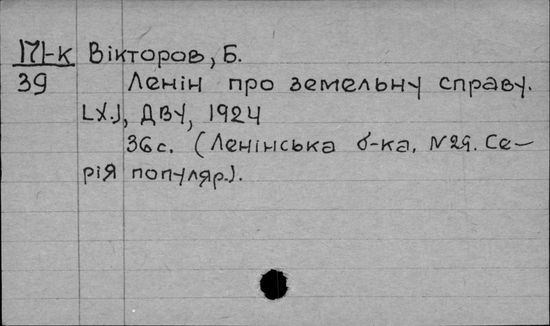 171-к Вікторов, Б.
39 Ленін про земельну справу.
[Х.], ДВУ, 1924
36 с. (Ленінська б-ка, N29. Се-
рія популяр.).